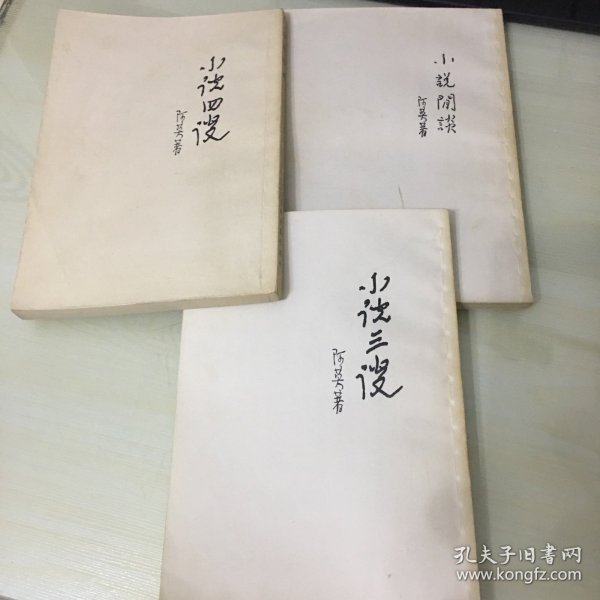 小说四谈
阿英著
小說閒談
阿英著
小说三谈
阿英著
孔夫子旧书网
www.kongfz.com